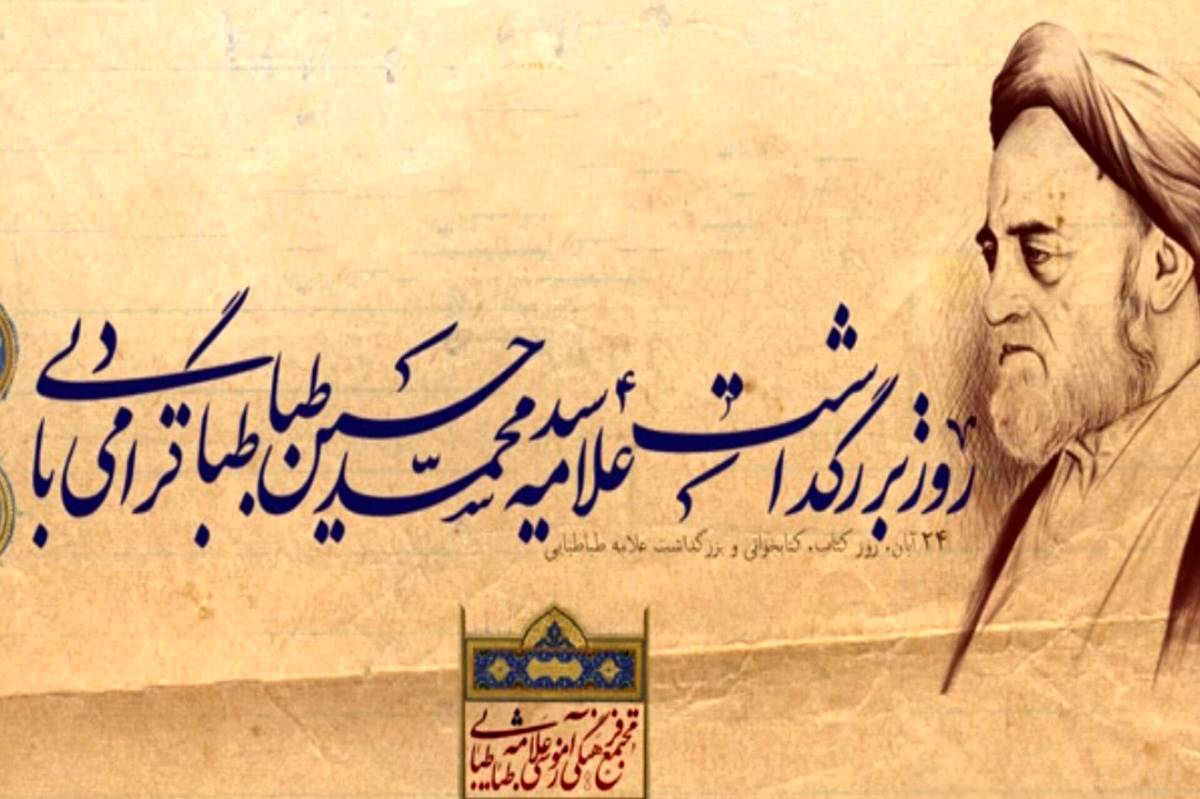 روز بزرگداشت علامه سید محمد حسین طباطبایی گرامی باد
۲۴ آبان، روز کتاب، کتابخوانی و بزرگداشت علامه طباطبایی
مجتمع فرهنگی آموزشی علامه طباطبایی